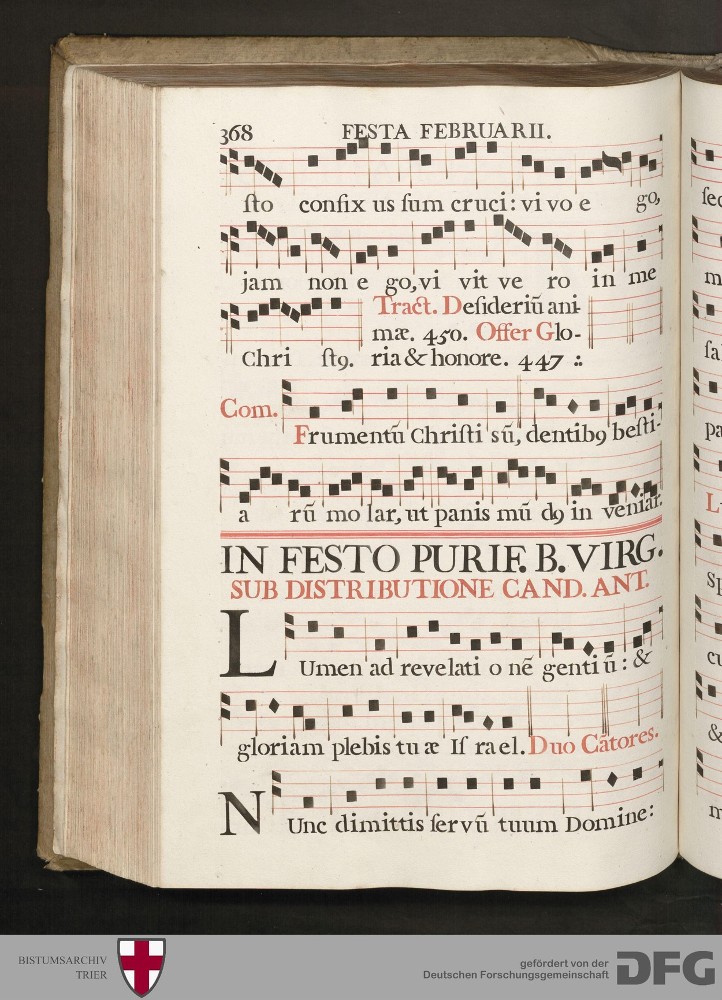 368 FESTA FEBRUARII.
ſto confix us ſum cruci: vi vo e go,
jam non e go, vi vit ve ro in me
Tract. Deſideriū ani-
mæ. 450. Offer Glo-
Chri ſt9. ria & honore. 447 :.
Com.
Frumentū Chriſti sū, dentib9 beſti-
a rū mo lar, ut panis mū d9 in veniar.
IN FESTO PURIF. B. VIRG.
SUB DISTRIBUTIONE CAND. ANT.
LUmen ad revelati o nē genti ū : &
gloriam plebis tu æ Iſ rael. Duo Cātores.
NUnc dimittis ſervū tuum Domine:
ſec
m
ſa
pa
L
SI
cu
&
m
BISTUMSARCHIV
TRIER
gefördert von der
Deutschen Forschungsgemeinschaft
DFG